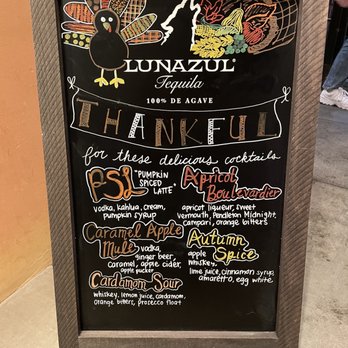 LUNAZUL®
Tequila
100% DE AGAVE
THANKFUL
for these delicious cocktails
PSL "PUMPKIN
SPICED
LATTE"
vodka, kahlua, cream,
pumpkin syrup
Caramel Apple
Mule
vodka,
ginger beer,
caramel, apple cider,
apple pucker
Cardamom Sour
whiskey, lemon juice, cardamom,
orange bitters, prosecco float
Apricot
Boulevardier
apricot liqueur, sweet
vermouth, Pendleton Midnight,
campari, orange bitters
Autumn
Spice
apple
whiskey,
lime juice, cinnamon syrup,
amaretto, egg white